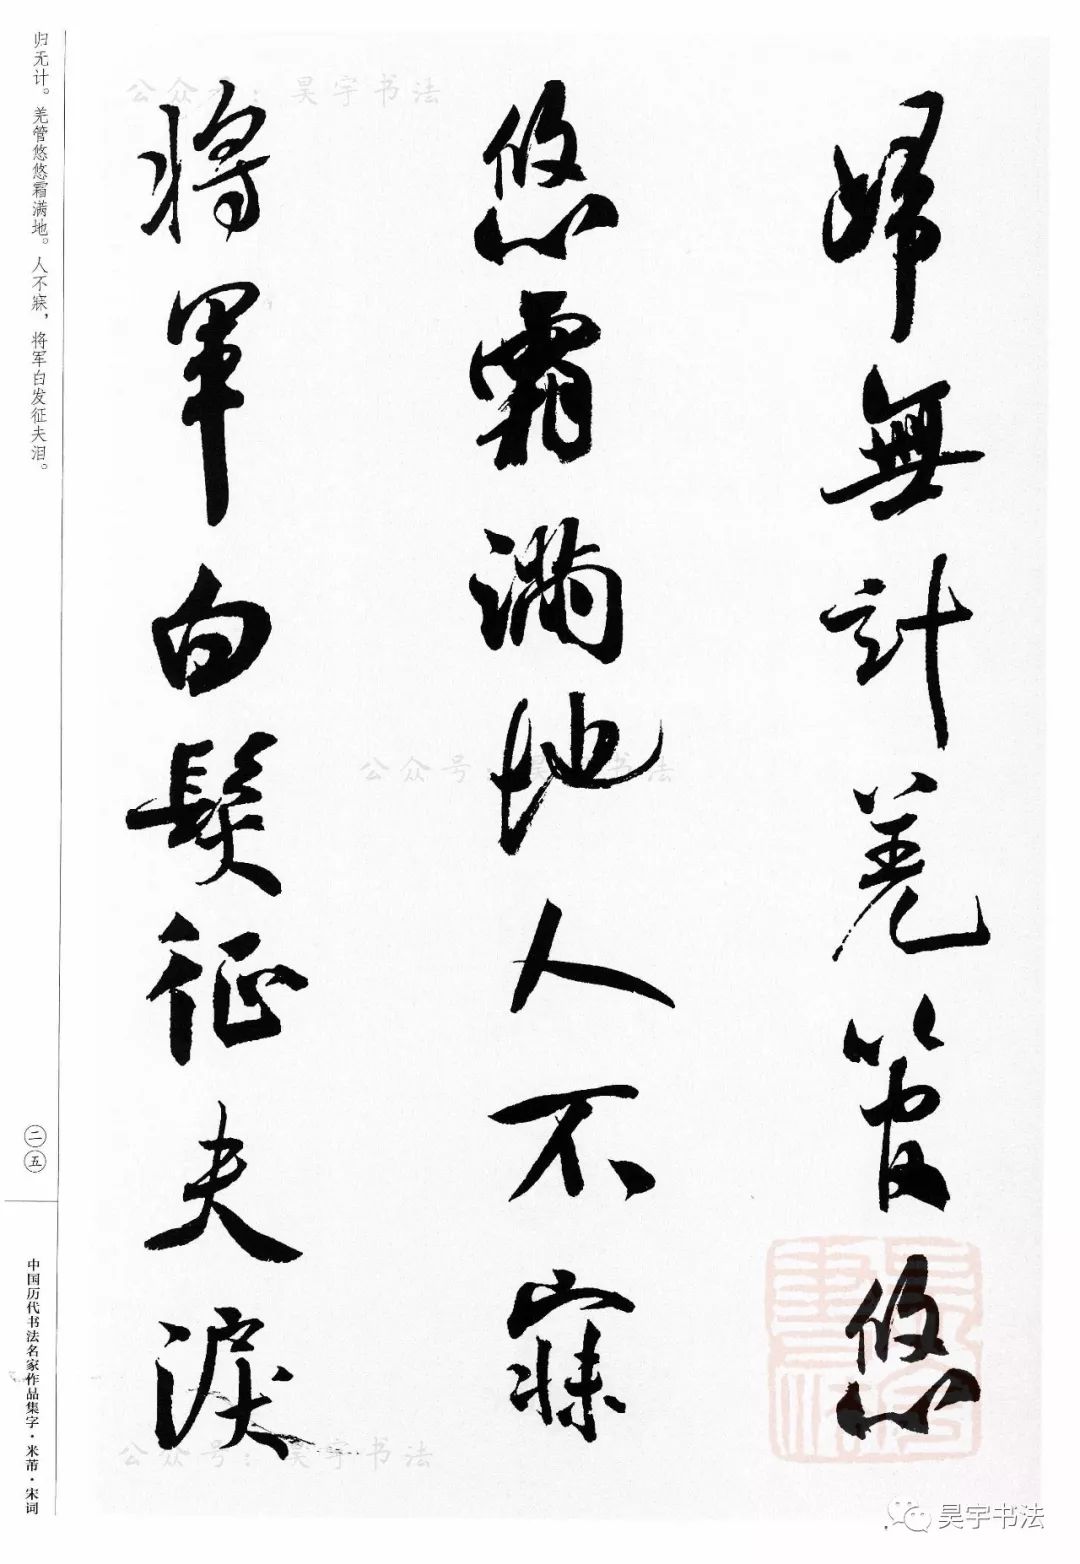 歸無計羌管悠
悠霜滿地人不寐
將軍白髮征夫淚
归无计。羌管悠悠霜满地。人不寐，将军白发征夫泪。
二五
中国历代书法名家作品集字·米芾·宋词
公众号：昊宇书法
公众号：昊宇书法
公众号：昊宇书法
昊宇书法